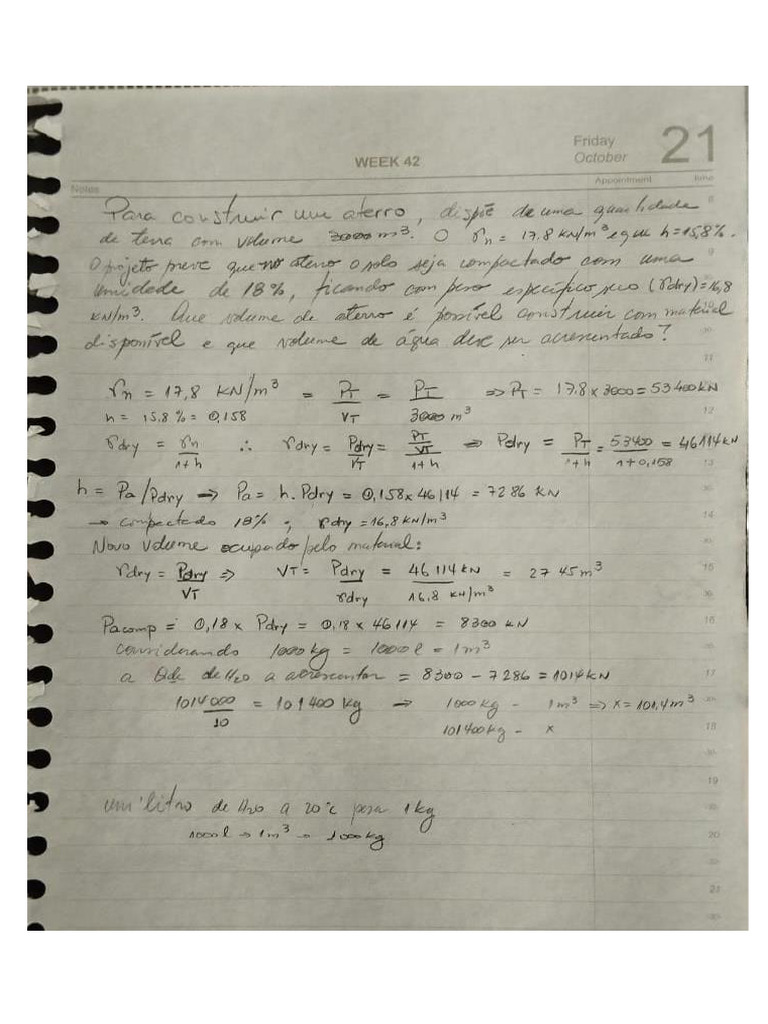 Friday 21
WEEK 42 October
Notes Appointment time
Para construir um aterro, dispõe de uma quantidade
de terra com volume 3000 m³. O γn = 17.8 kN/m³ e que h=15,8%.
O projeto preve que no aterro o solo seja compactado com uma
umidade de 18%, ficando com peso específico seco (γdry)=16,8
kN/m³. Que volume de aterro é possível construir com material
disponível e que volume de água deve ser acrescentado?
γn = 17,8 KN/m³ = PT/VT = PT/3000 m³ ⇒ PT = 17.8 x 3000 = 53400 kN
h = 15.8% = 0,158
γdry = γn/1+h ∴ γdry = Pdry/VT = PT/VT/1+h ⇒ Pdry = PT/1+h = 53400/1+0,158 = 46114 kN
h = Pa/Pdry → Pa = h. Pdry = 0,158 x 46114 = 7286 KN
→ compactado 18% ; γdry = 16,8 kN/m³
Novo volume ocupado pelo material:
γdry = Pdry/VT ⇒ VT = Pdry/γdry = 46114 kN/16.8 kN/m³ = 2745 m³
Pacomp = 0,18 x Pdry = 0,18 x 46114 = 8300 kN
considerando 1000 kg = 1000 l = 1 m³
a Qde de H2O a acrescentar = 8300 - 7286 = 1014 KN
1014000/10 = 101400 kg → 1000 kg - 1 m³ ⇒ x = 101,4 m³
101400 kg - x
um litro de H2O a 20°c pesa 1 kg
1000 l → 1 m³ → 1000 kg
8
9
10
11
12
13
14
15
16
17
18
19
20
21